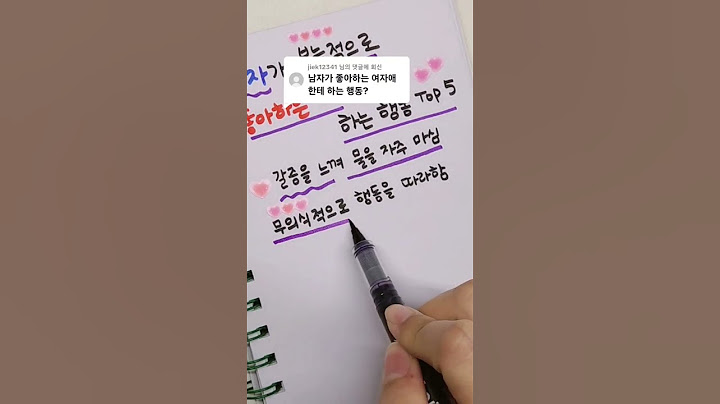 본능적으로
jiek12341 님의 댓글에 회신
남자가 좋아하는 여자애
한테 하는 행동?
하는 행동 Top 5
갈증을 느껴 물을 자주 마심
무의식적으로 행동을 따라함